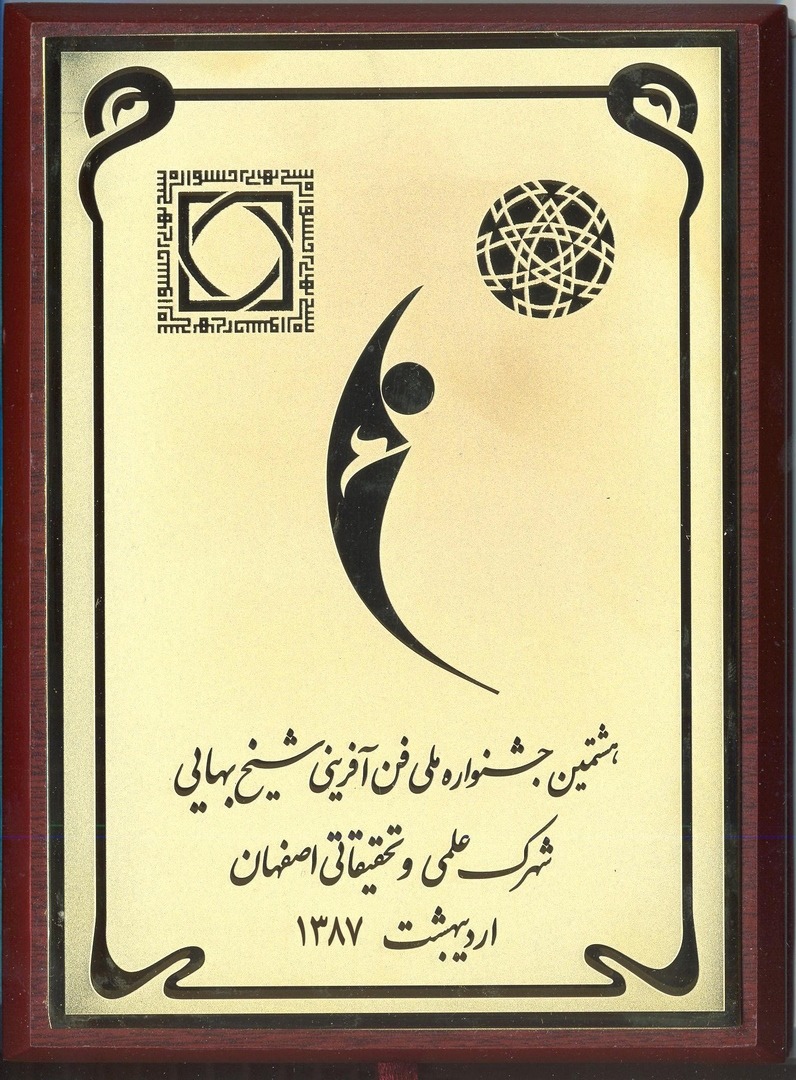 هشتمین جشنواره ملی فن آفرینی شیخ بهایی
شهرک علمی و تحقیقاتی اصفهان
اردیبهشت ۱۳۸۷